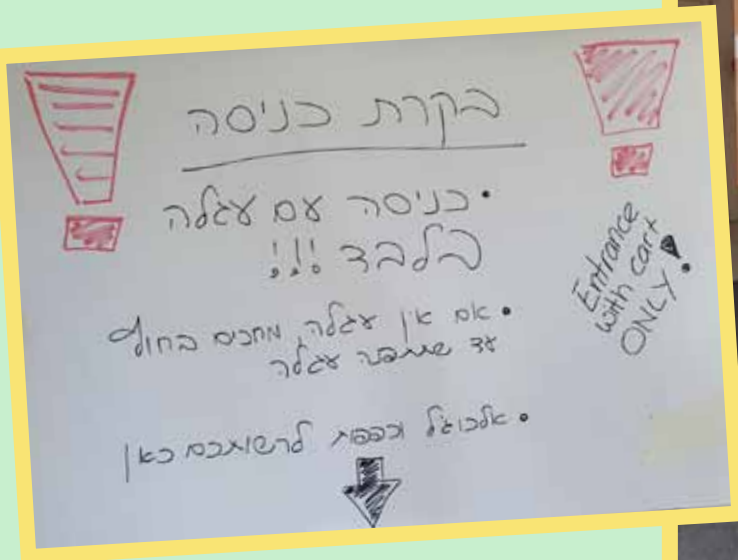 בקרת כניסה
• כניסה עם עגלה
בלבד !!!
• אם אין עגלה, מחכים בחוץ
עד שתתפנה עגלה
• אלכוג'ל וכפפות לרשותכם כאן
Entrance
with cart
ONLY!